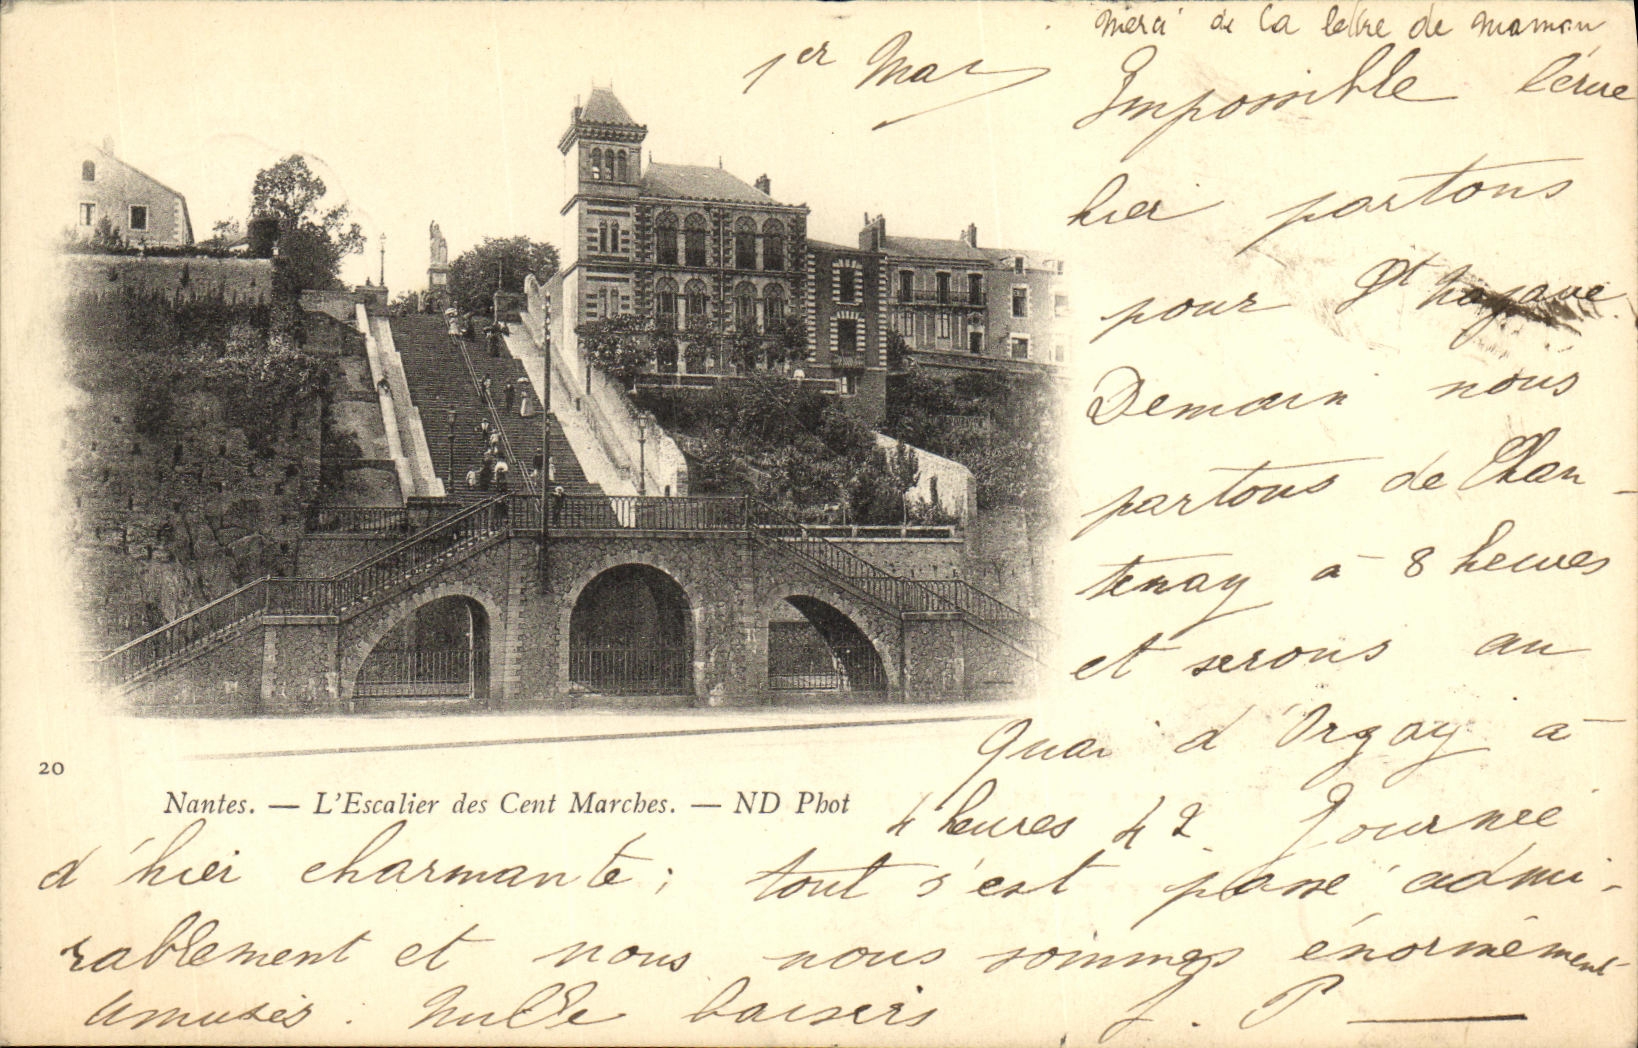 merci de la lettre de maman
1er Mar
Impossible
hier partons
pour St
Demain nous
partons de Chan-
tenay à 8 heures
et serons au
Quai d'Orsay à
4 heures 42. Journée
20
Nantes. — L'Escalier des Cent Marches. — ND Phot
d'hier charmante ; tout s'est passé admi-
rablement et nous nous sommes énormément
amusés. Mille baisers J. P